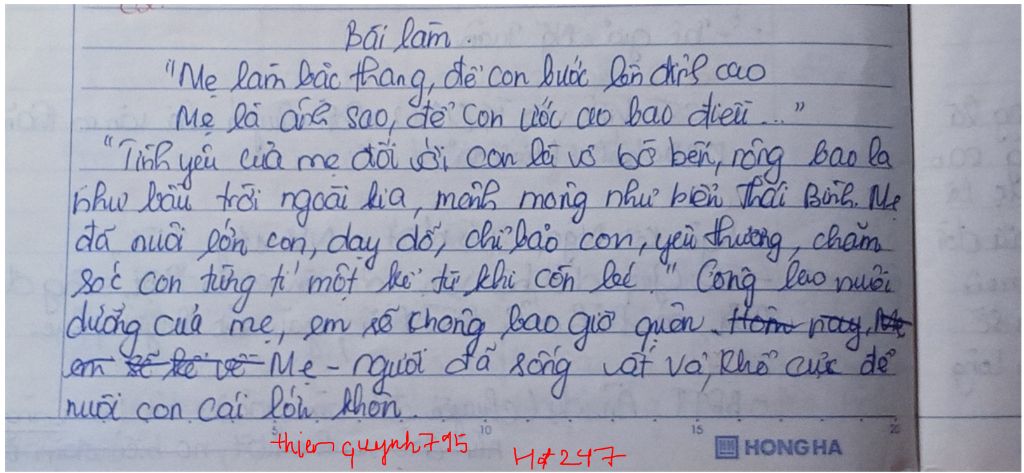 Bài làm.
"Mẹ làm bậc thang, để con bước lên đỉnh cao
Mẹ là ánh sao, để con ước ao bao điều..."
"Tình yêu của mẹ đối với con là vô bờ bến, rộng bao la
như bầu trời ngoài kia, mênh mong như biển Thái Bình. Mẹ
đã nuôi lớn con, dạy dỗ, chỉ bảo con, yêu thương, chăm
sóc con từng tí một kể từ khi còn bé" Công lao nuôi
dưỡng của mẹ, em sẽ chẳng bao giờ quên. Hôm nay,
em sẽ kể về Mẹ - người đã sống vất vả, khổ cực để
nuôi con cái lớn khôn.
thienquynh795
Hd247
15
20
10
5
HONG HA